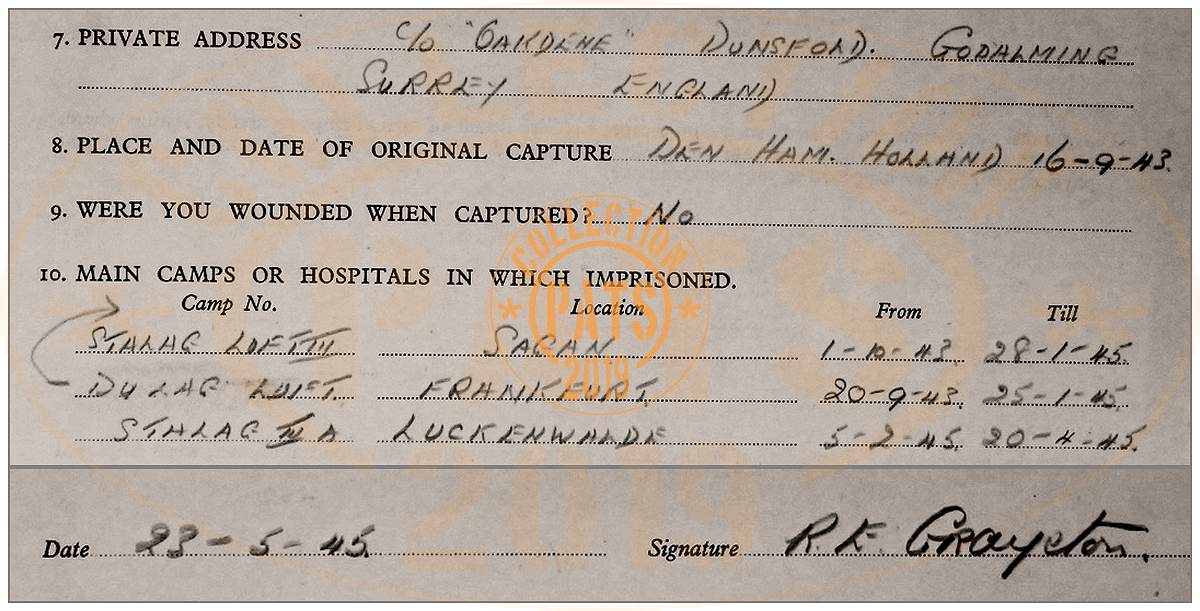 7. PRIVATE ADDRESS c/o "OAKDENE" DUNSFOLD. GODALMING
SURREY ENGLAND
8. PLACE AND DATE OF ORIGINAL CAPTURE DEN HAM. HOLLAND 16-9-43.
9. WERE YOU WOUNDED WHEN CAPTURED? No
10. MAIN CAMPS OR HOSPITALS IN WHICH IMPRISONED.
Camp No. Location From Till
STALAG LUFT III SAGAN 1-10-43. 28-1-45.
DULAG LUFT. FRANKFURT. 20-9-43. 25-1-45.
STALAG III A LUCKENWALDE 5-2-45. 20-4-45.
Date 23-5-45. Signature R.E. Grayston.
COLLECTION
PATS
2019